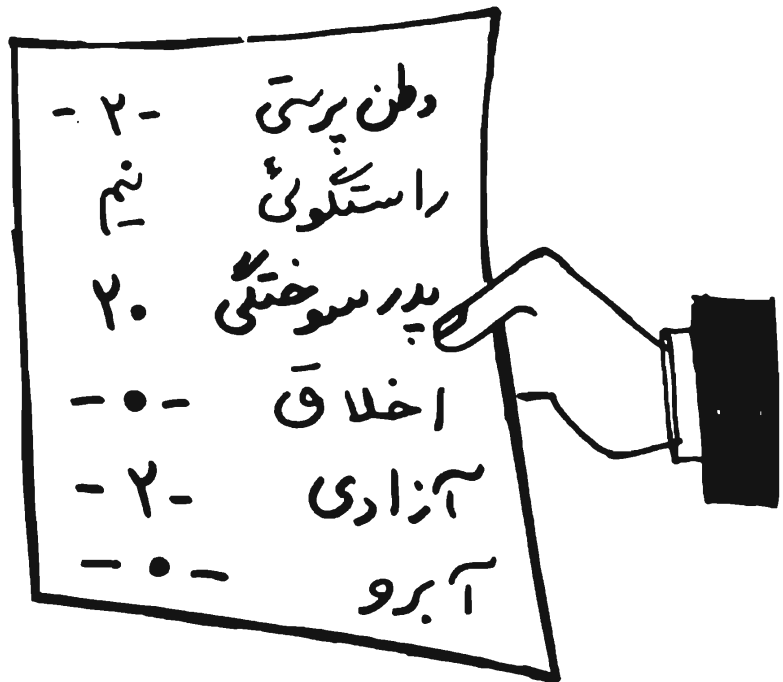 وطن پرستی -۲-
راستگوئی نیم
پدرسوختگی ۲۰
اخلاق -۰-
آزادی -۲-
آبرو -۰-